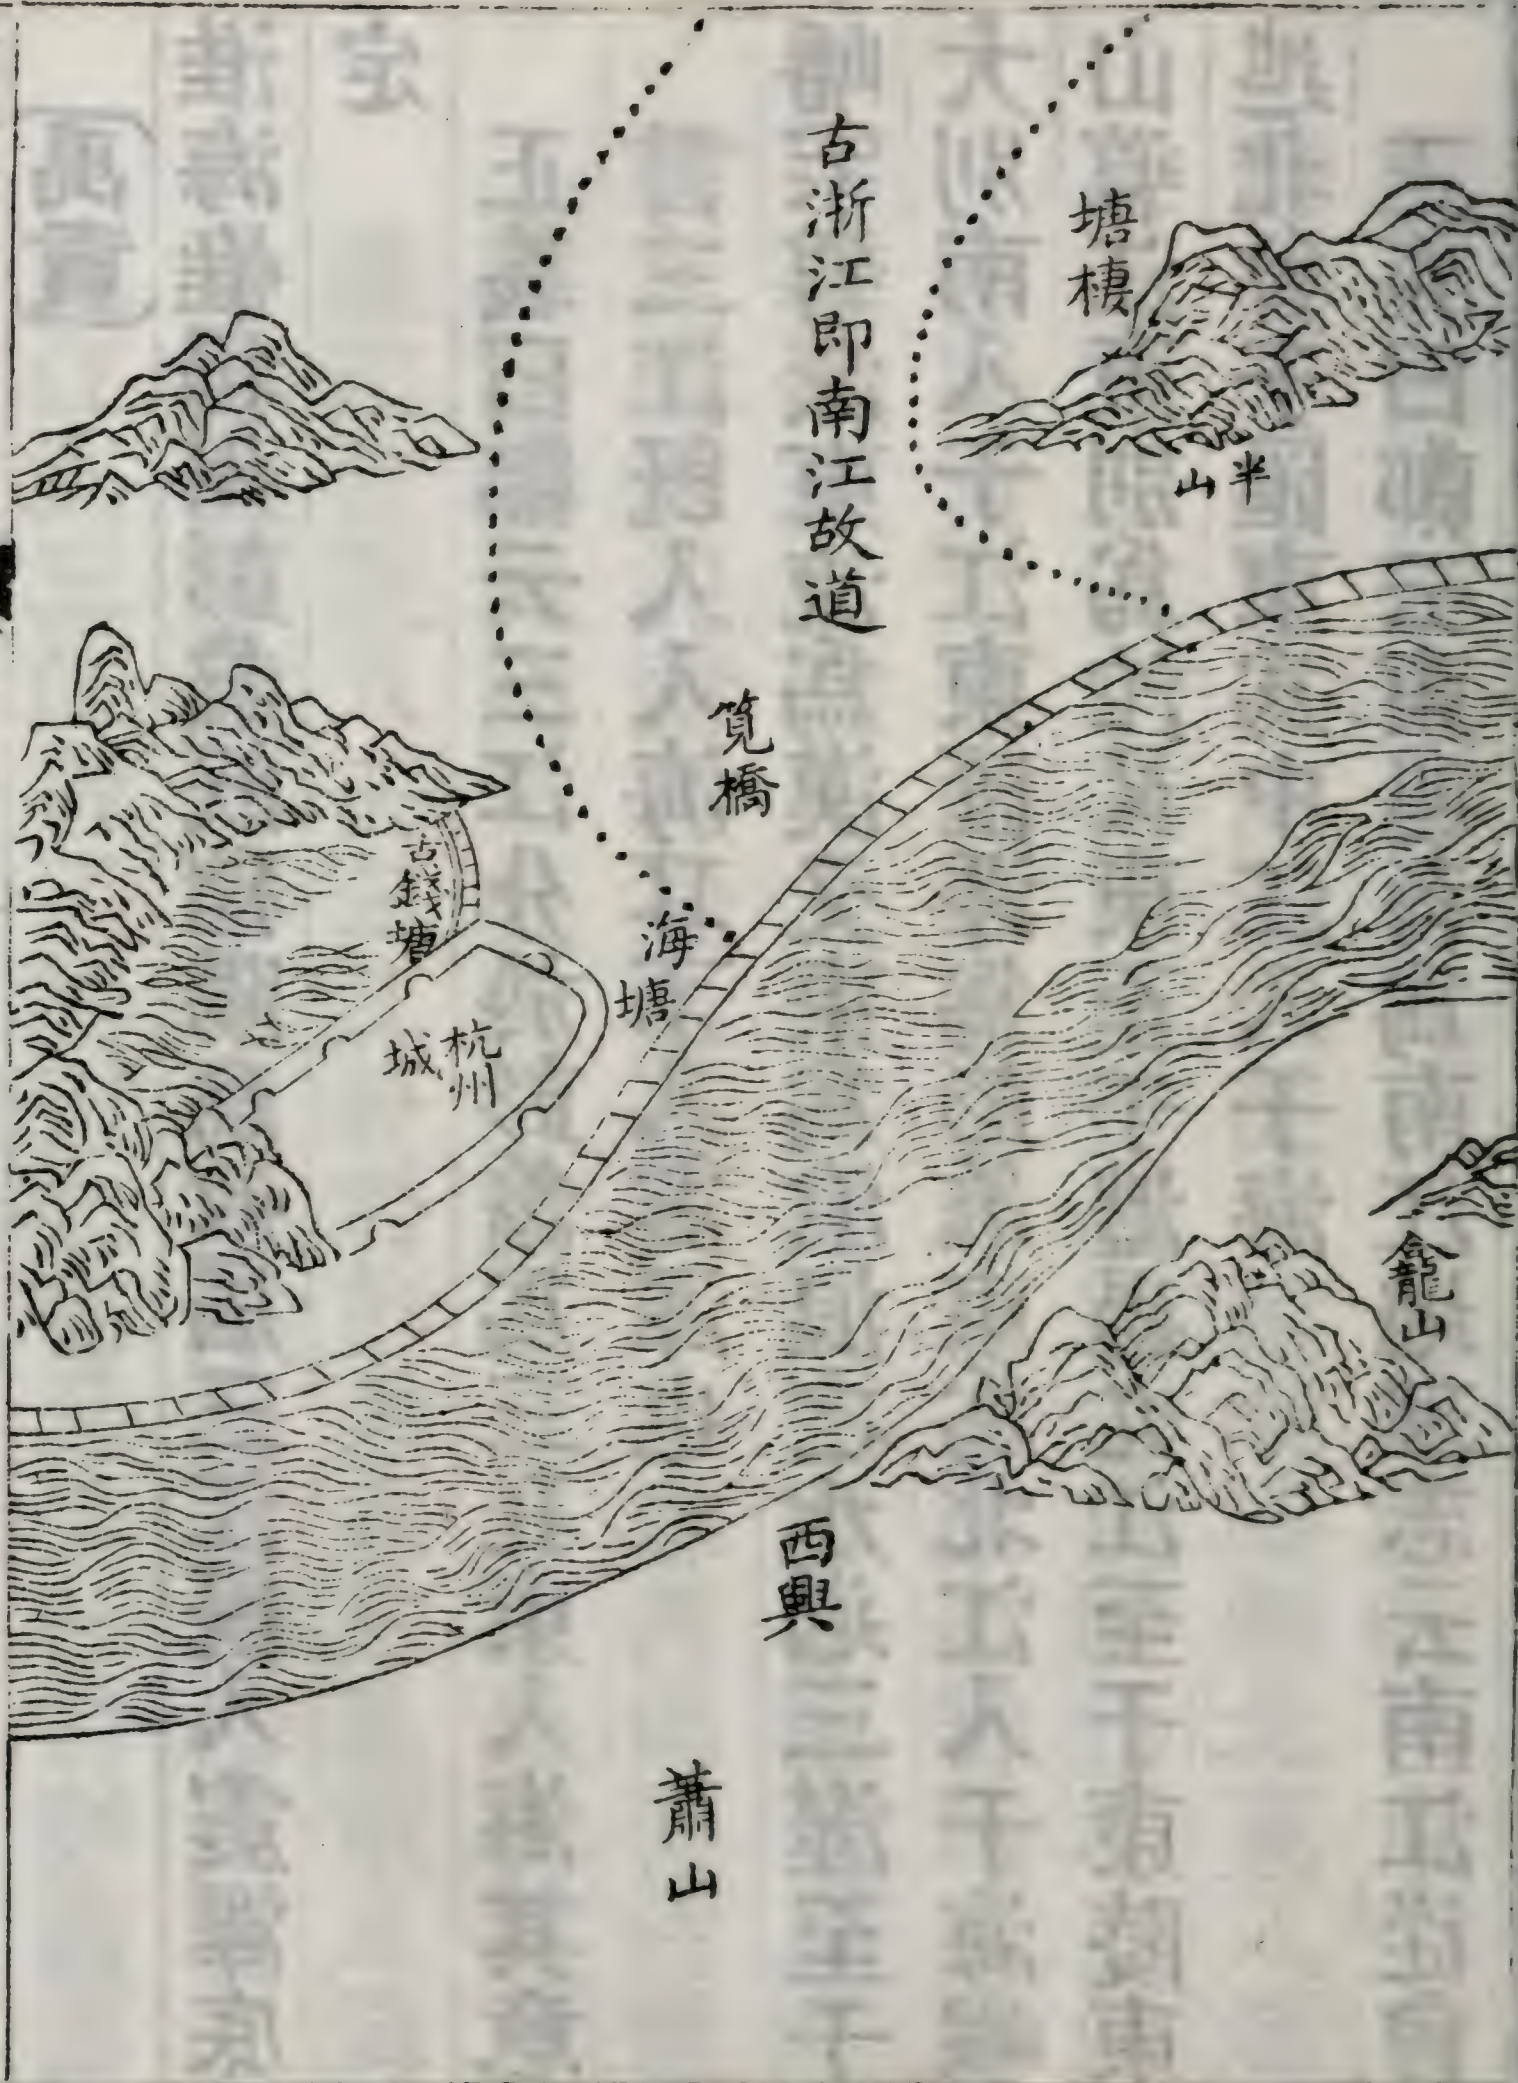 塘棲
半山
古浙江即南江故道
筧橋
海塘
古錢塘
杭州城
龕山
西興
蕭山